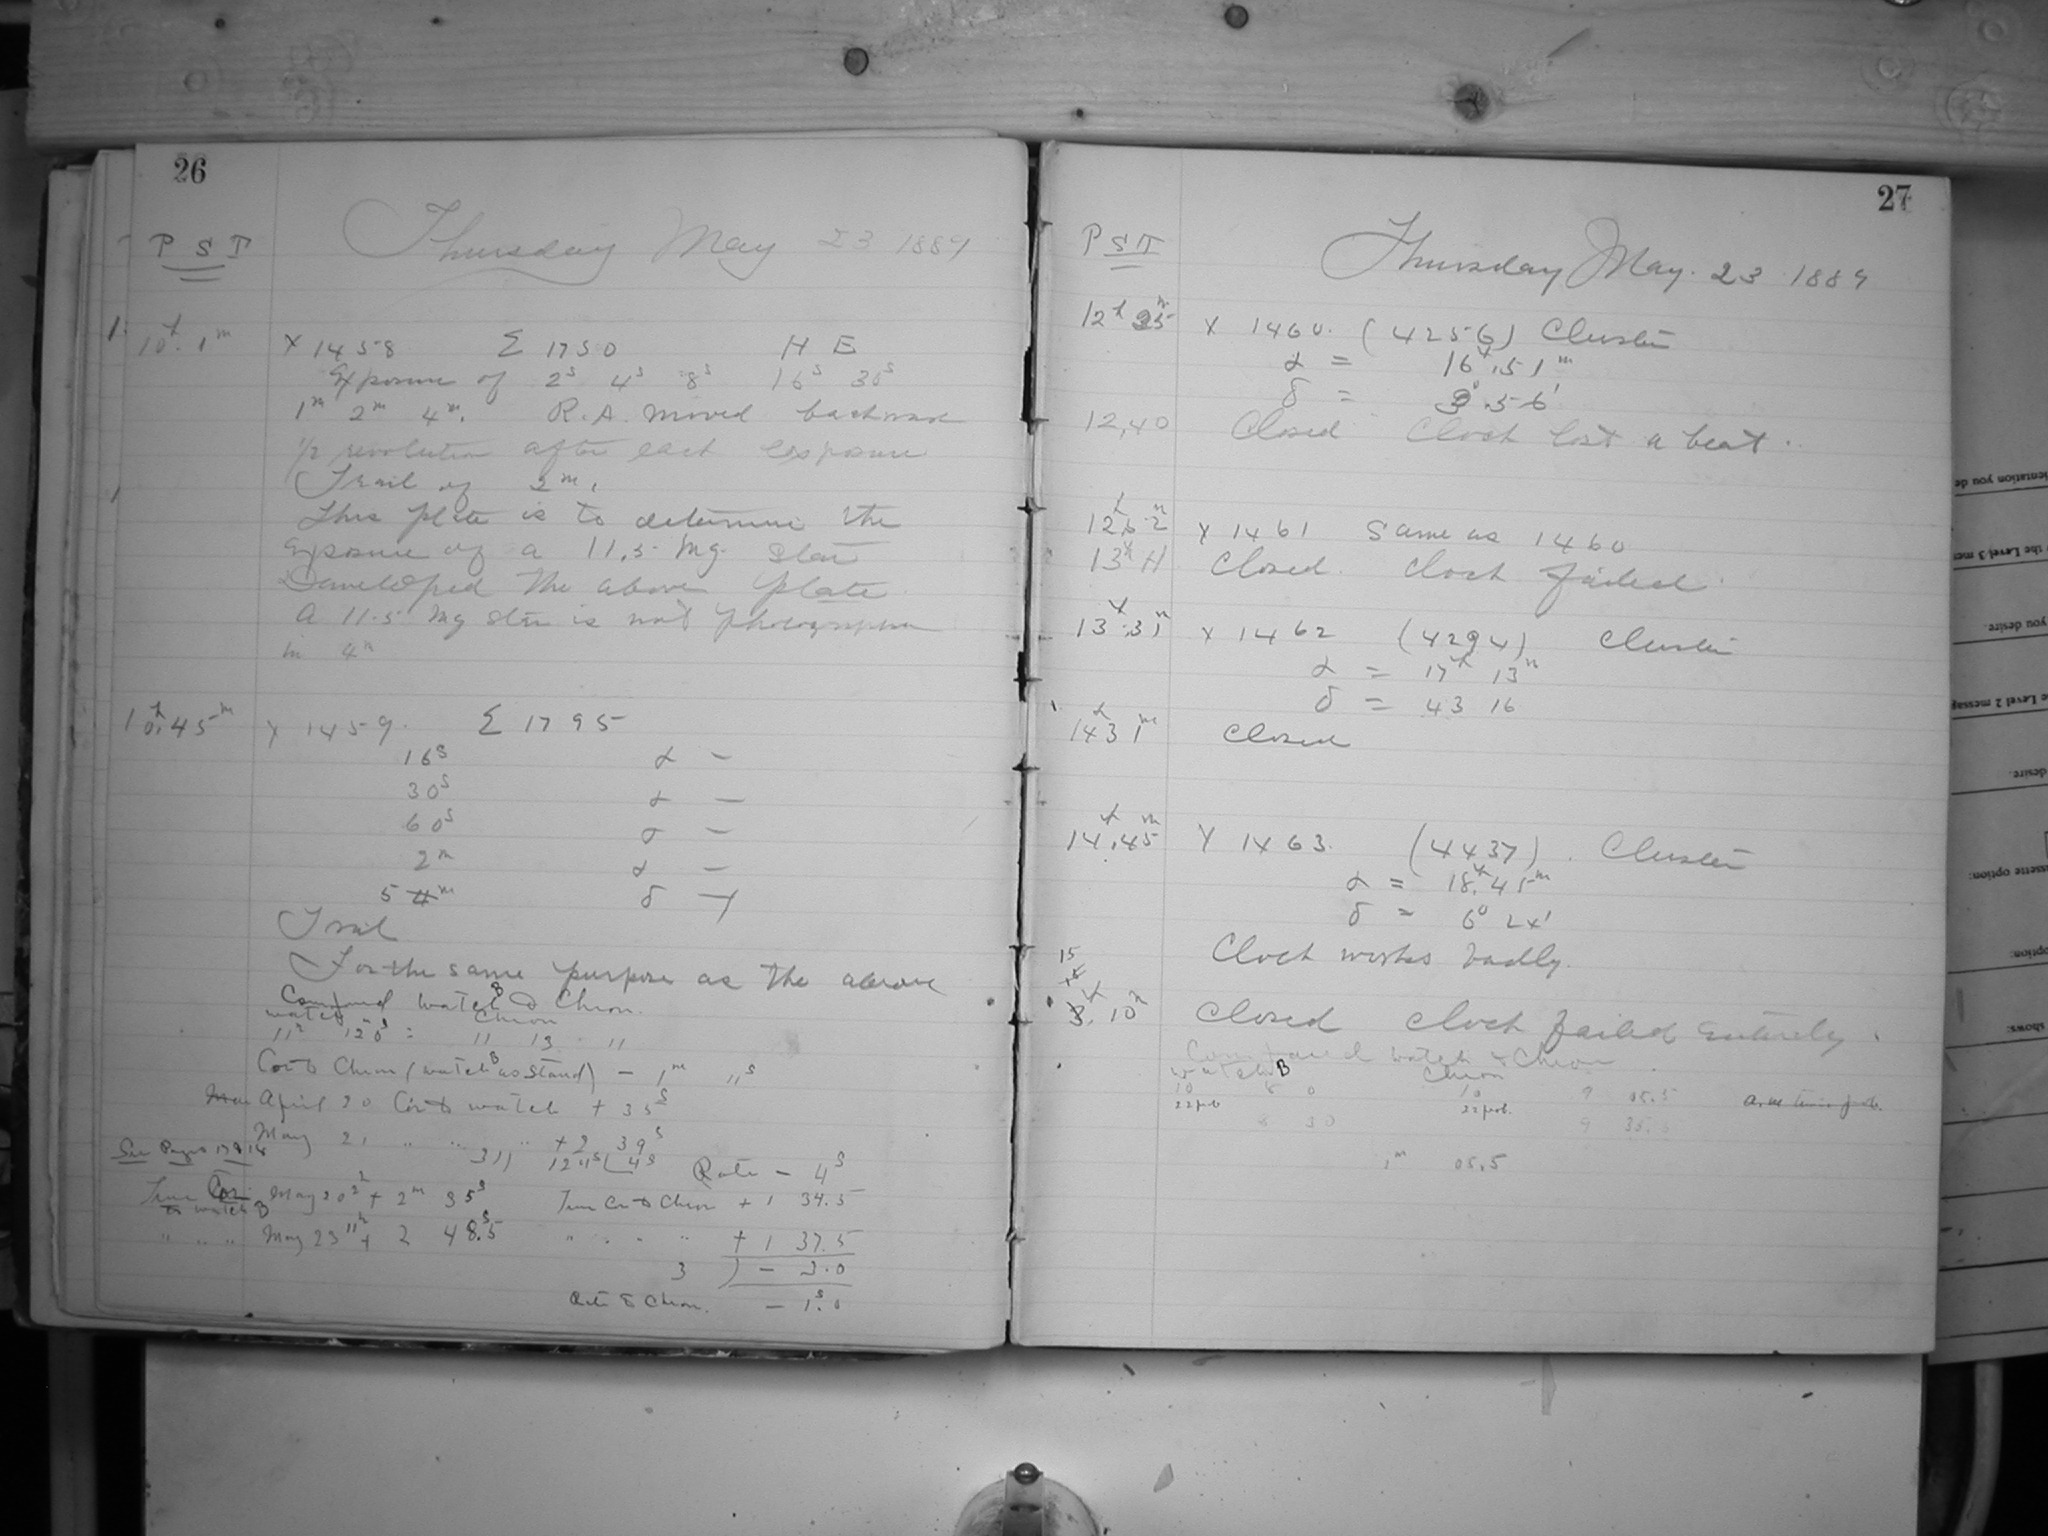 26
P S T
Thursday May 23 1889
10h. 1m X 1458 Σ 1750 H E
Exposure of 2s 4s 8s 16s 30s
1m 2m 4m. R.A. moved backward
1/2 revolution after each exposure
Trail of 2m.
This plate is to determine the
exposure of a 11.5 Mg Star
Developed the above plate
A 11.5 Mg star is not photographed
in 4m
10h.45m X 1459. Σ 1795
16s α –
30s α –
60s
2m α –
5 4m δ
Trail
For the same purpose as the above
Compared watch B & Chron.
watch Chron
11h 12 0s = 11 13 11
Cor to Chron (watch B as stand) – 1m 11s
Mar April 20 Cor to watch + 35s
May 21 " " " + 2 39s
31) 124s 4s Rate – 4s
See Pages 17 & 18
True Cor. May 20 + 2m 35s True Cor to Chron + 1 34.5
to watch B
" " " May 23 11h + 2 48.5s " " " " + 1 37.5
3 ) – 3.0
Rate to Chron. – 1s.0
27
P S T
Thursday May. 23 1889
12h 35m X 1460. (4256) Cluster
α = 16h.51m
δ = 3°.56'
12,40 Closed Clock lost a beat.
X 1461 Same as 1460
Closed. Clock failed.
13h.31m X 1462 (4294) Cluster
α = 17h 13m
δ = 43 16
14h 31m Closed
14h.45m X 1463. (4437). Cluster
α = 18h.45m
δ = 6° 24'
Clock works badly.
15
3h. 10m Closed clock failed entirely.
Compared watch & Chron
watch B Chron
10 8 0 10 9 05.5
22 prob 22 prob.
8 30 9 35.5
1m 05.5